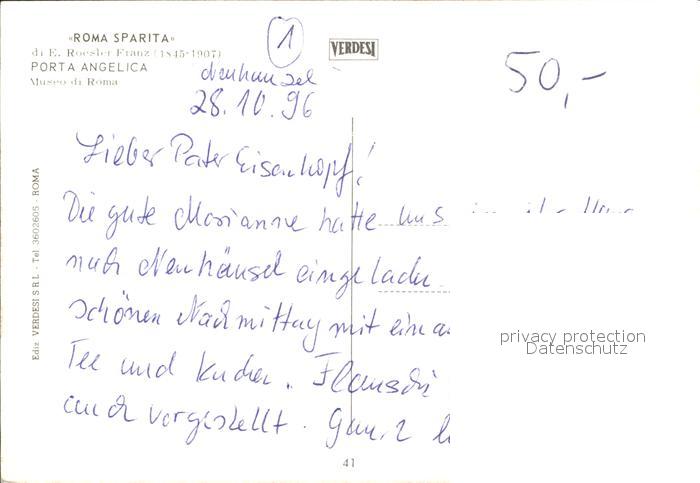 «ROMA SPARITA»
di E. Roesler Franz (1845-1907)
PORTA ANGELICA
Museo di Roma
1
VERDESI
50,-
Neuhäusel
28.10.96
Lieber Pater Eisenkopf!
Die gute Marianne hatte uns
nach Neuhäusel eingeladen
schönen Nachmittag mit ein
Tee und Kuchen.
auch vorgestellt. Ganz
privacy protection
Datenschutz
Ediz VERDESI S R L - Tel 3602605 - ROMA
41